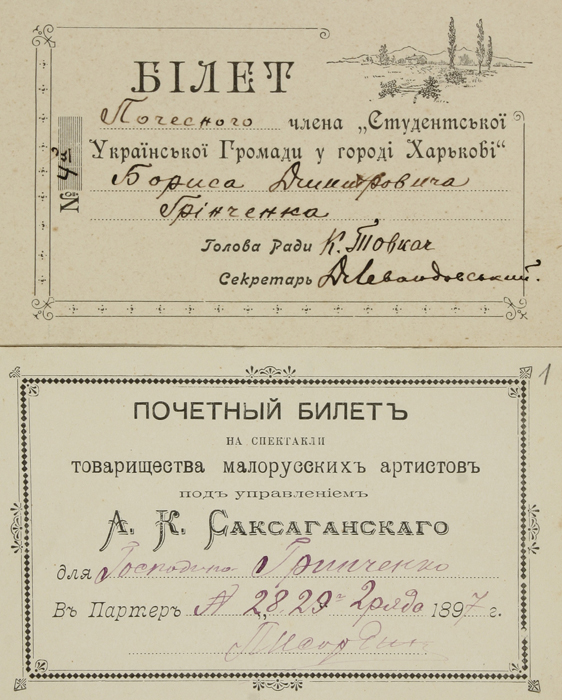 БІЛЕТ
Почесного члена „Студентської
Української Громади у городі Харькові“
№ 4й
Бориса Дмитровича
Грінченка
Голова Ради К. Товкач
Секретарь Д. Левандовський.
1
ПОЧЕТНЫЙ БИЛЕТЪ
НА СПЕКТАКЛИ
товарищества малорусскихъ артистовъ
подъ управленіемъ
А. К. Саксаганскаго
для Господина Гринченко
Въ Партеръ 28, 29 2 ряда 1897 г.